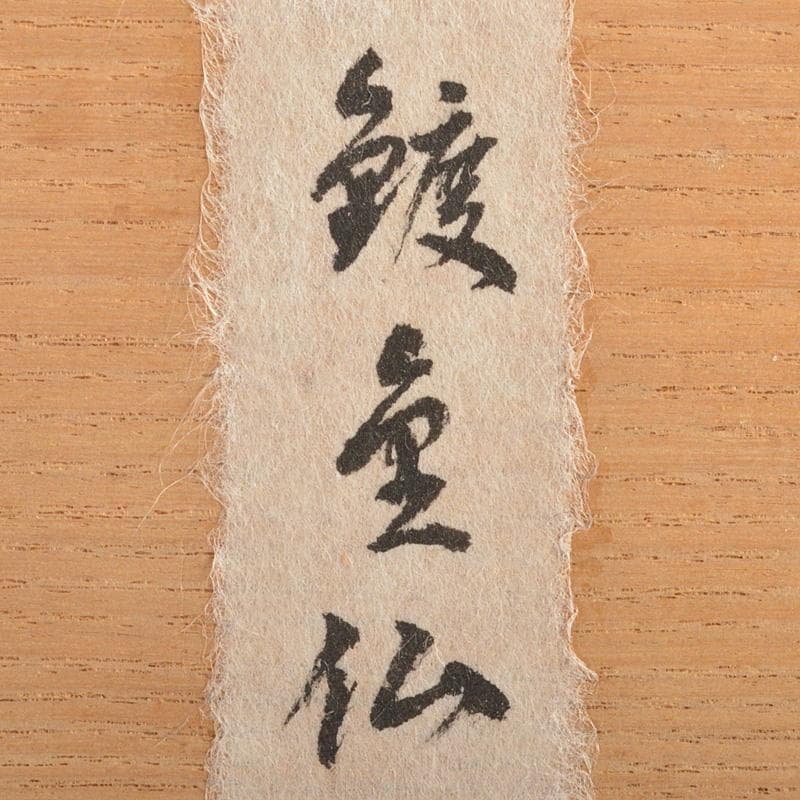 鍍金仏